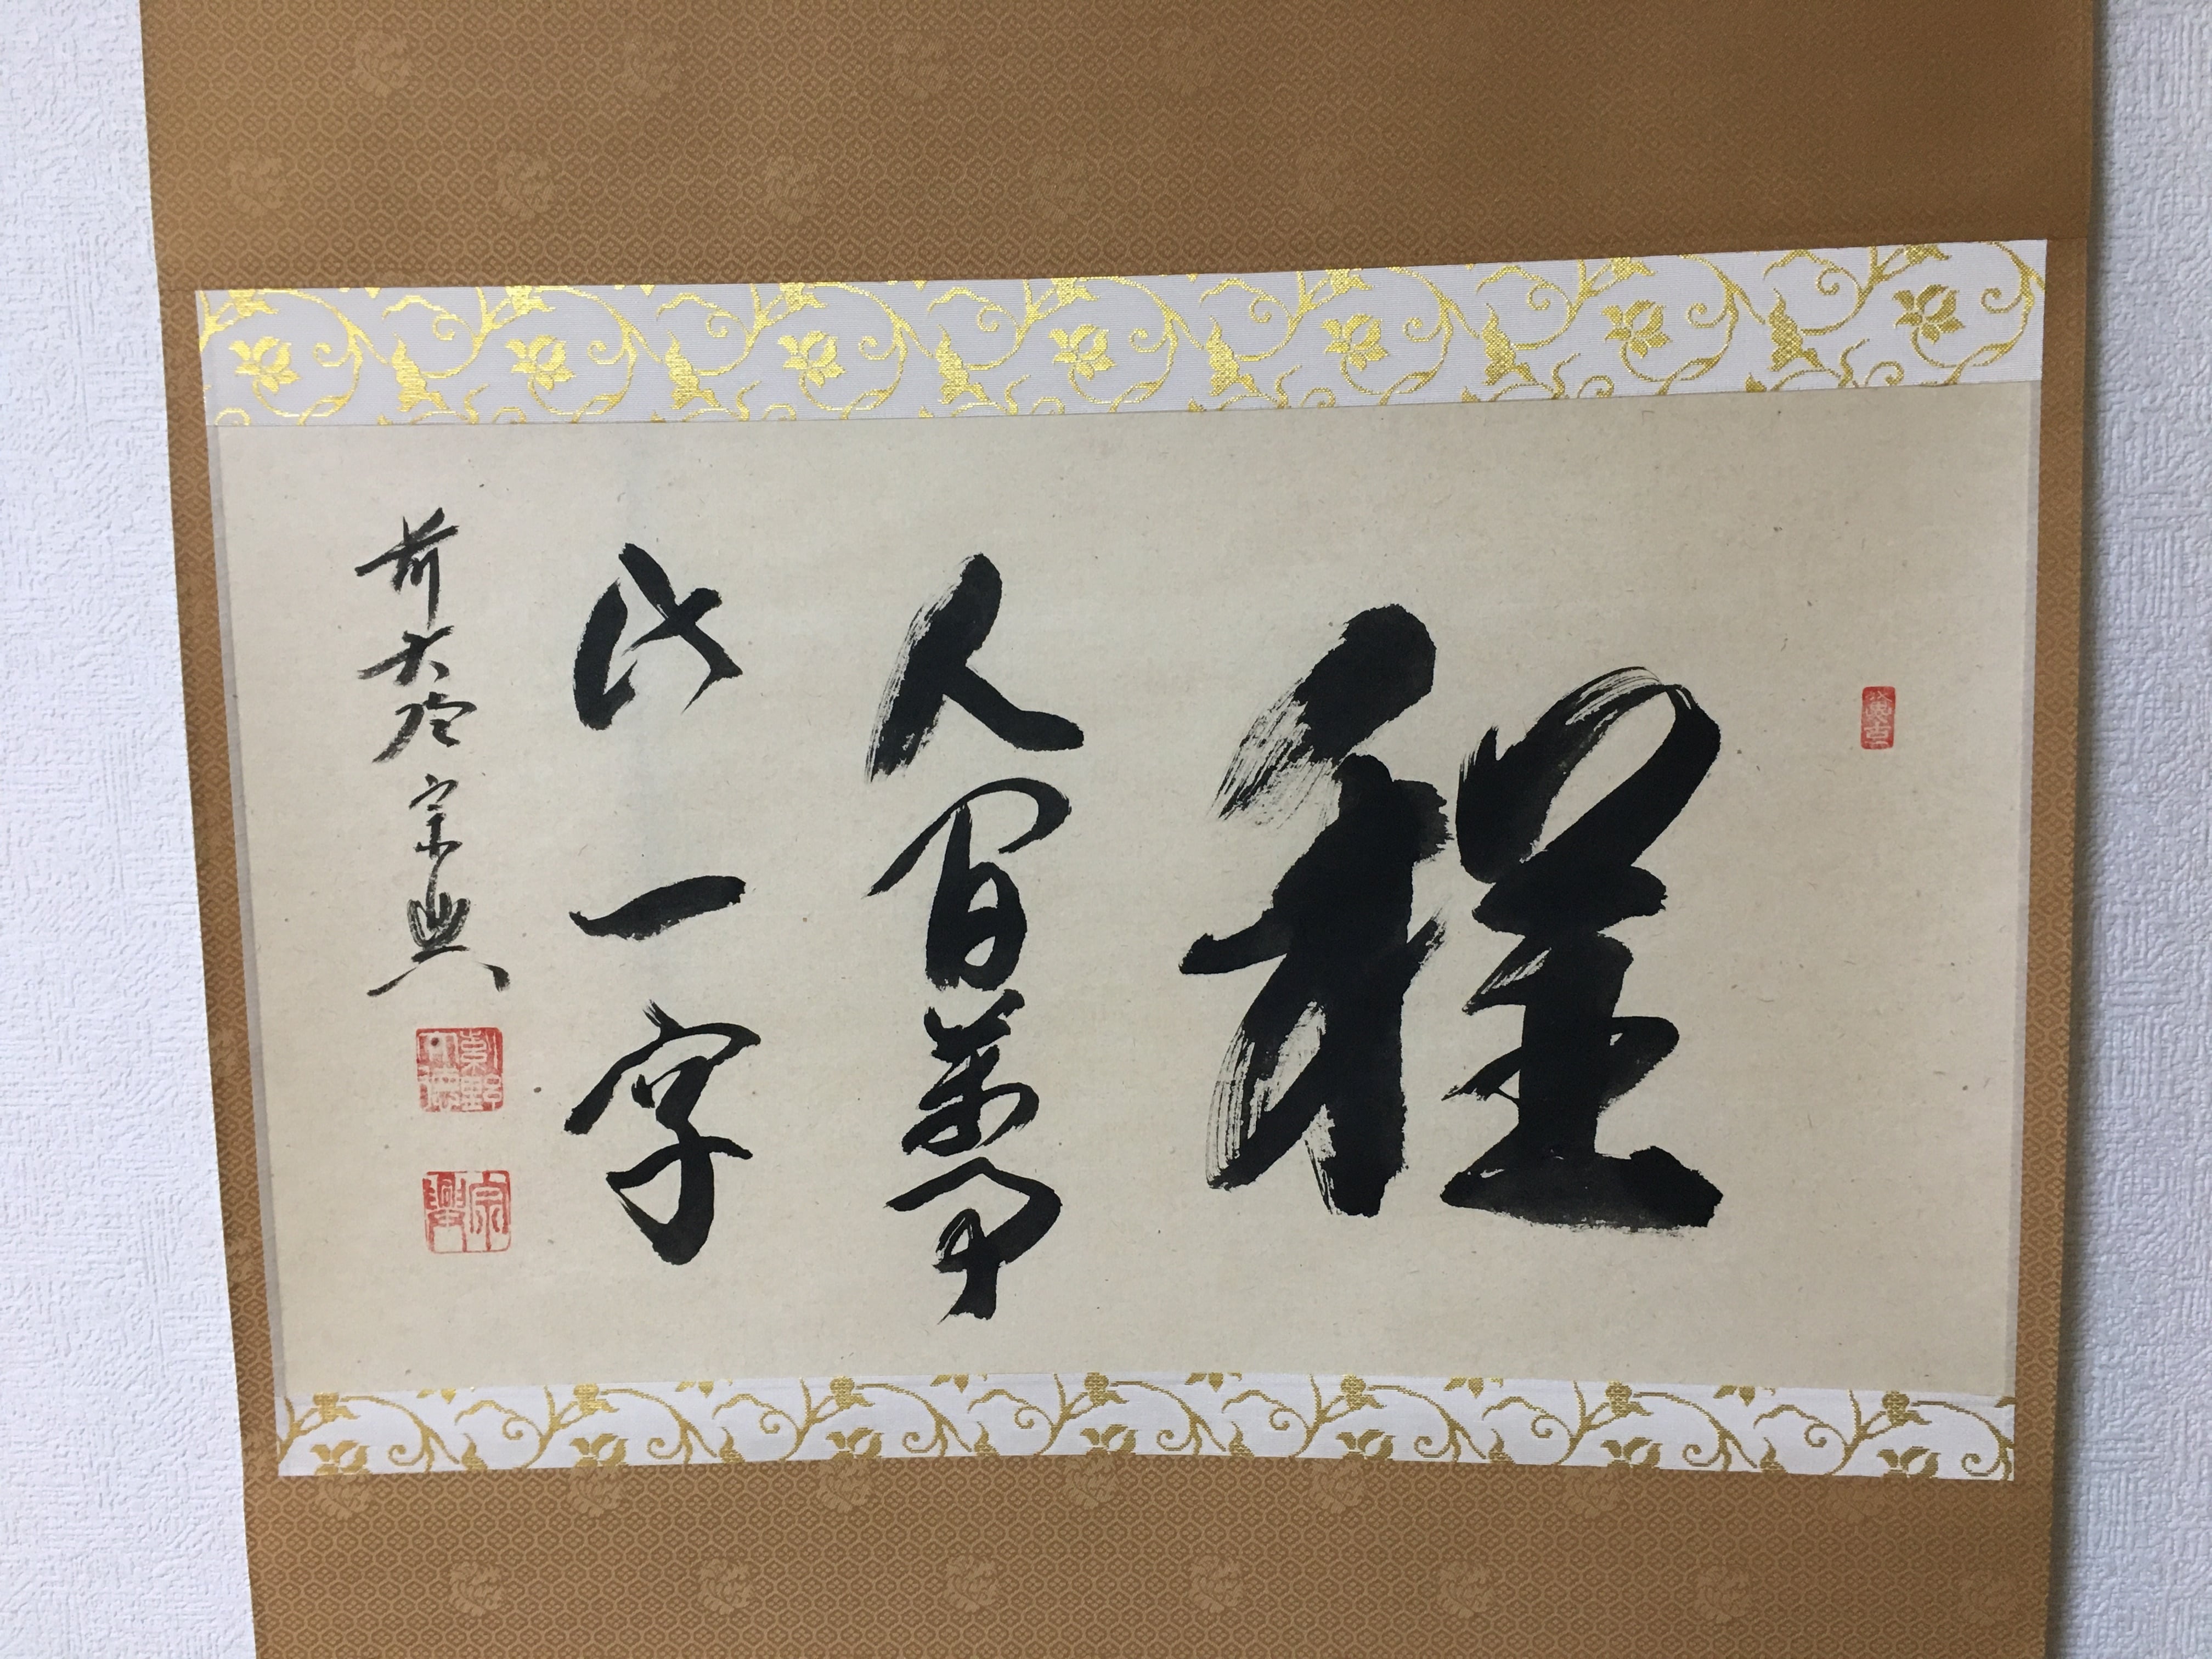 程
人間萬事
此一字
前大徳宗興
宗興